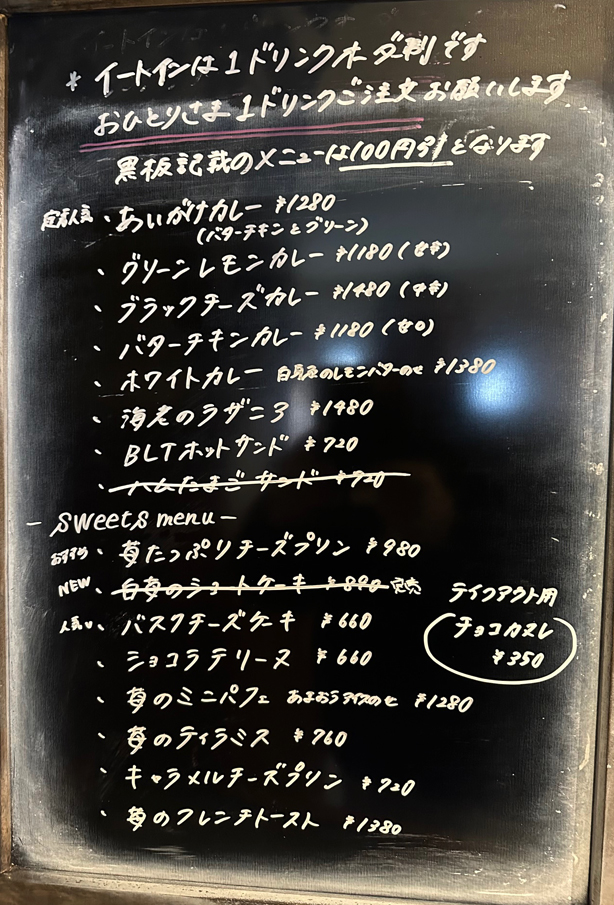 * イートインは1ドリンクオーダー制です
おひとりさま1ドリンクご注文お願いします
黒板記載のメニューは100円引となります
定番人気・あいがけカレー ¥1280
(バターチキンとグリーン)
・グリーンレモンカレー ¥1180
・ブラックチーズカレー ¥1480 (中辛)
・バターチキンカレー ¥1180
・ホワイトカレー 自家製のレモンバターのせ ¥1380
・海老のラザニア ¥1480
・BLTホットサンド ¥720
・ハムたまごサンド ¥720
- sweets menu -
おすすめ・苺たっぷりチーズプリン ¥980
NEW・白苺のショートケーキ ¥890 完売
テイクアウト用
人気・バスクチーズケーキ ¥660
チョコカヌレ
¥350
・ショコラテリーヌ ¥660
・苺のミニパフェ あまおうアイスのせ ¥1280
・苺のティラミス ¥760
・キャラメルチーズプリン ¥720
・苺のフレンチトースト ¥1380